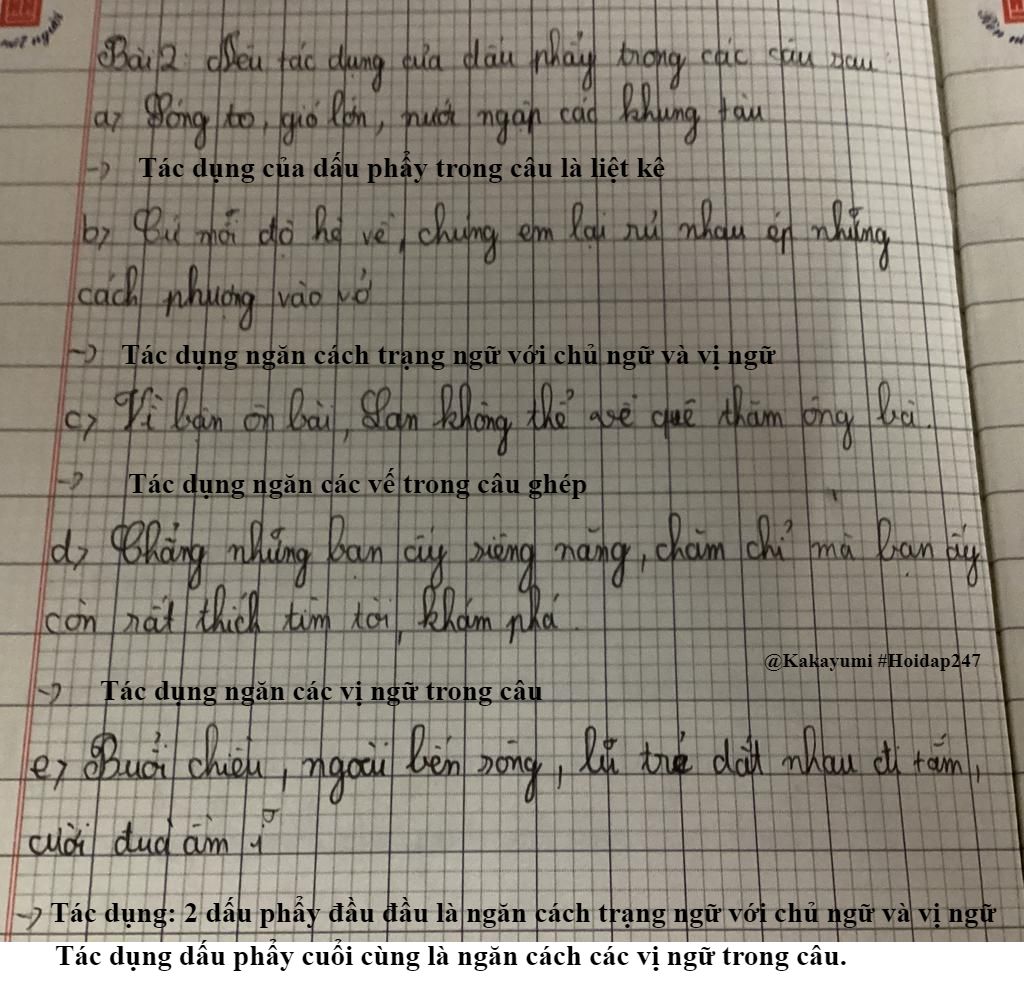 Bài 2: Nêu tác dụng của dấu phẩy trong các câu sau
a) Sóng to, gió lớn, nước ngập các khung tàu
-> Tác dụng của dấu phẩy trong câu là liệt kê
b) Cứ mỗi độ hè về, chúng em lại rủ nhau ép những
cách phượng vào vở
-> Tác dụng ngăn cách trạng ngữ với chủ ngữ và vị ngữ
c) Vì bận ôn bài, Lan không thể về quê thăm ông bà.
-> Tác dụng ngăn các vế trong câu ghép
d) Chẳng những bạn ấy siêng năng, chăm chỉ mà bạn ấy
còn rất thích tìm tòi, khám phá.
@Kakayumi #Hoidap247
-> Tác dụng ngăn các vị ngữ trong câu
e) Buổi chiều, ngoài bến sông, lũ trẻ dắt nhau đi tắm,
cười đùa ầm ĩ
-> Tác dụng: 2 dấu phẩy đầu đầu là ngăn cách trạng ngữ với chủ ngữ và vị ngữ
Tác dụng dấu phẩy cuối cùng là ngăn cách các vị ngữ trong câu.